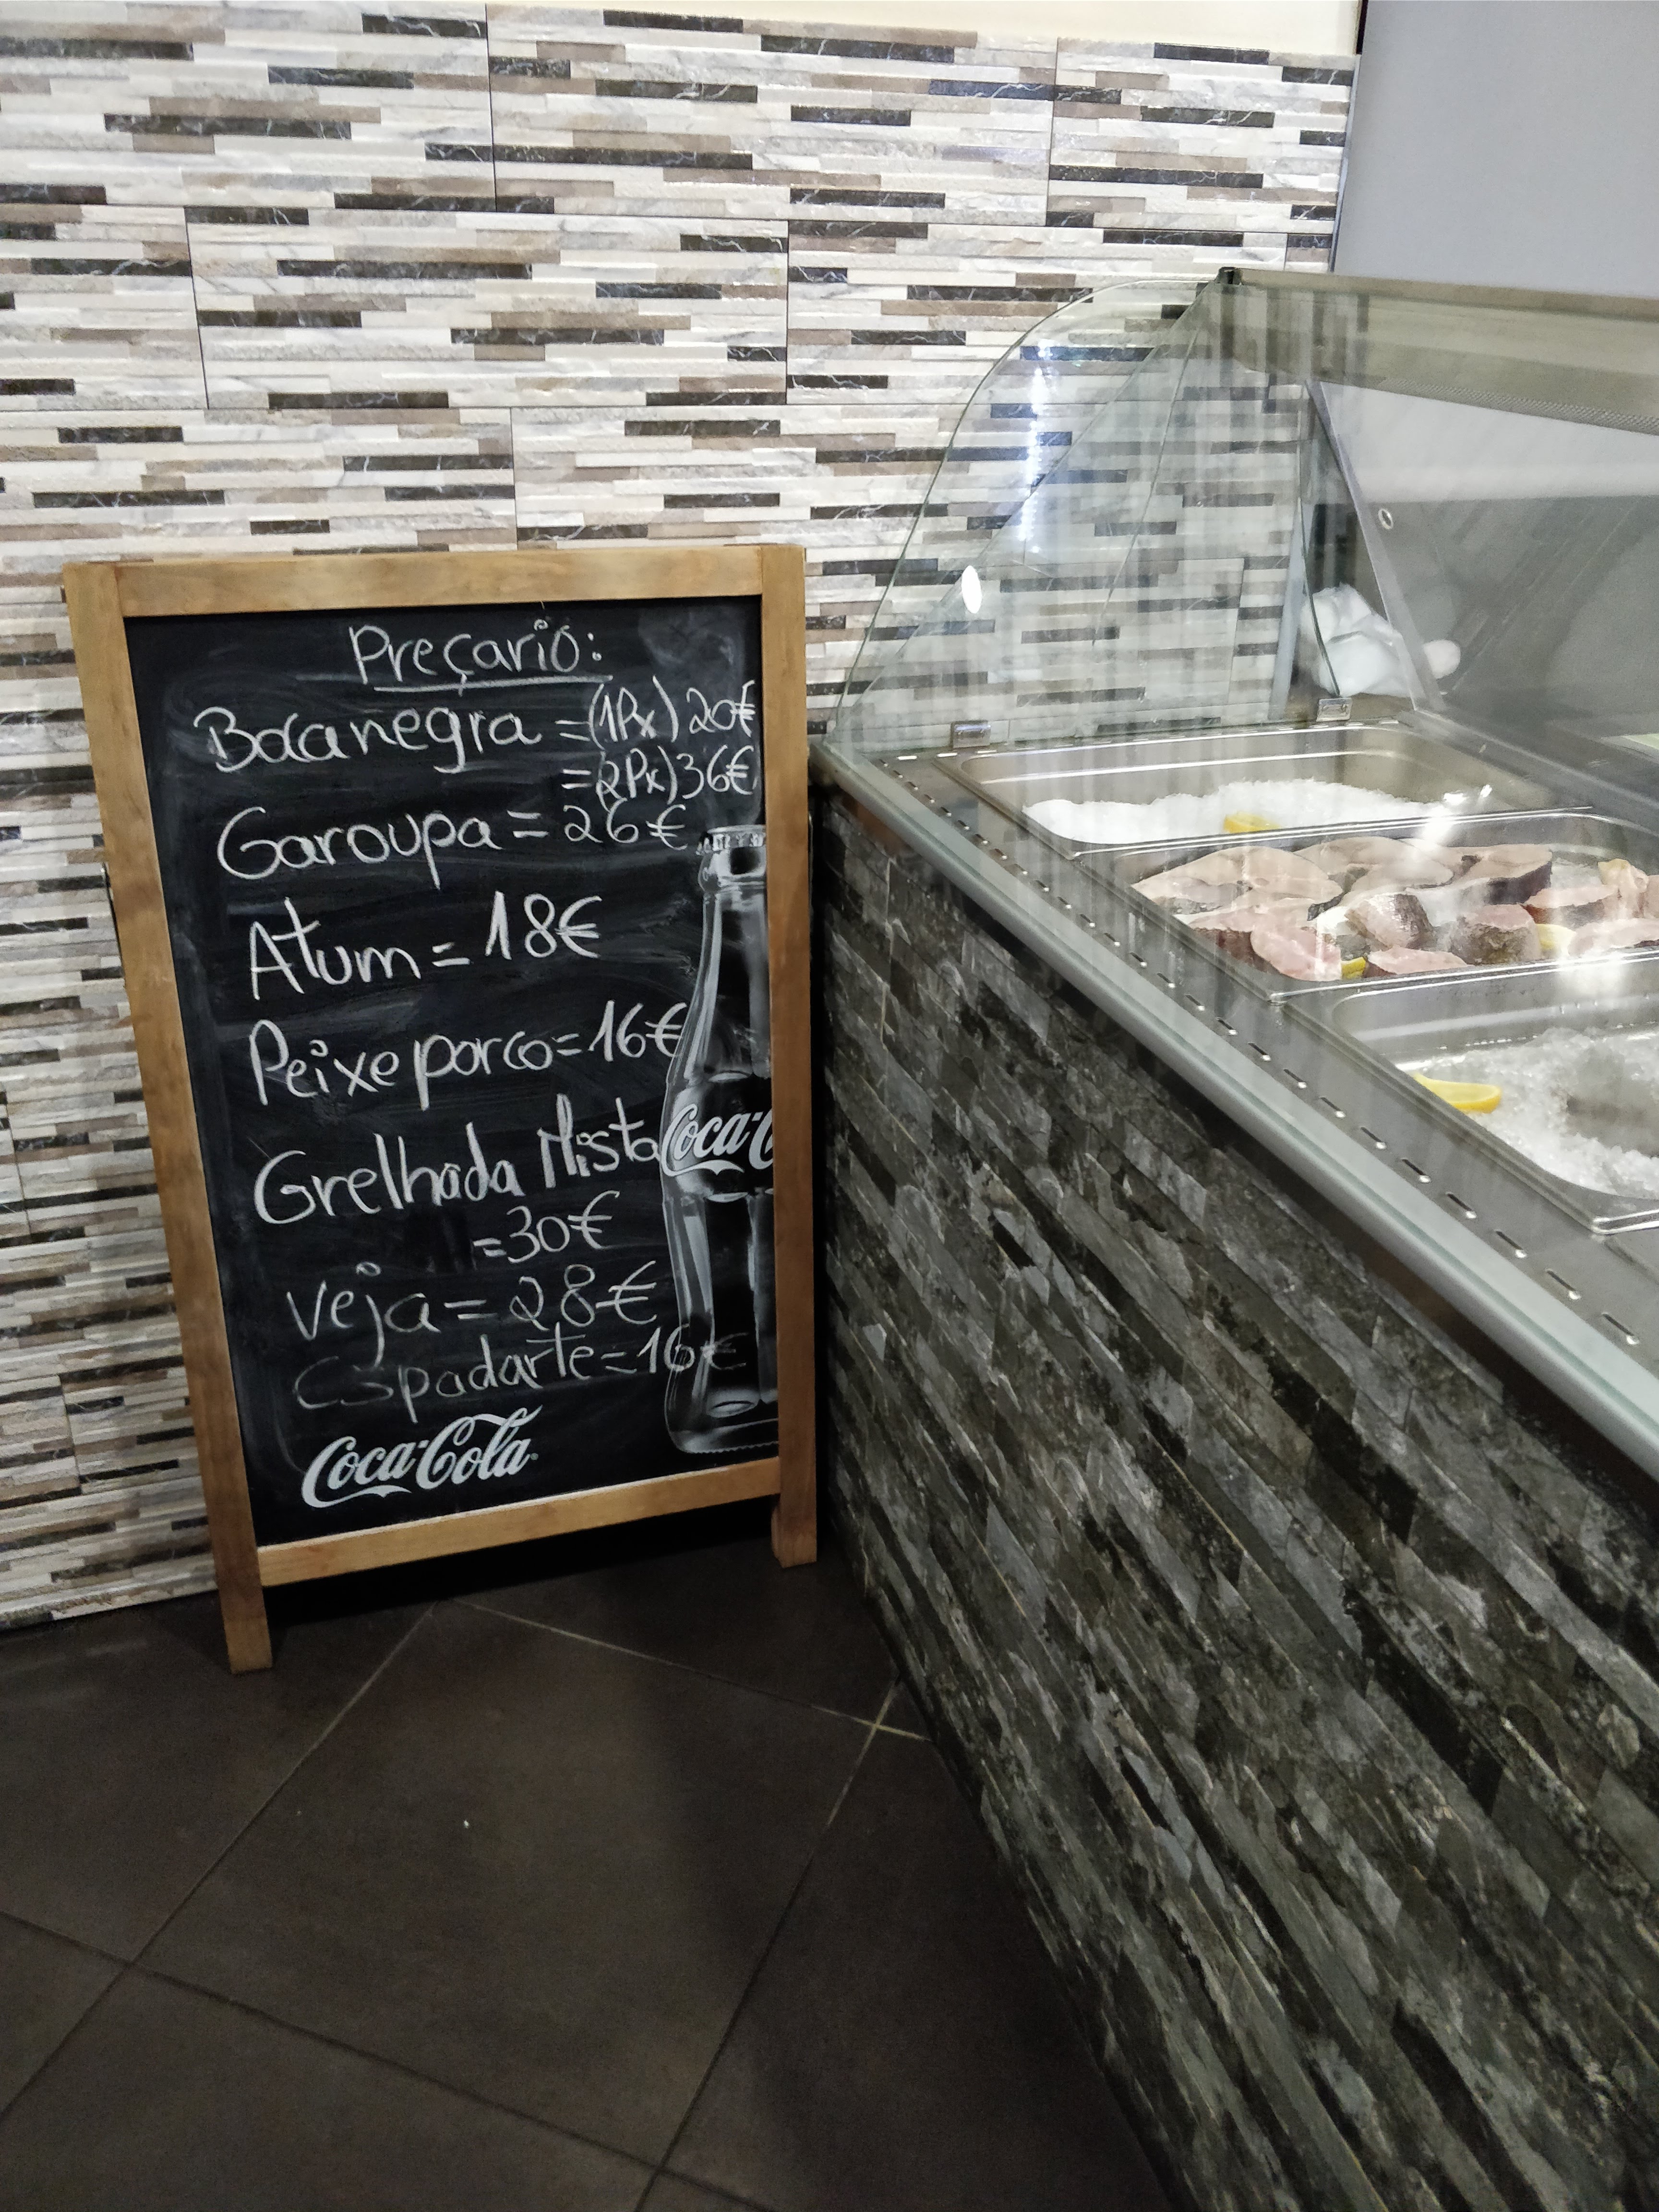 Preçario:
Bocanegra = (1Px) 20€
= (2Px) 36€
Garoupa = 26€
Atum = 18€
Peixe porco = 16€
Grelhada Mista
= 30€
Veja = 28€
Espadarte = 16€
Coca-C
Coca-Cola